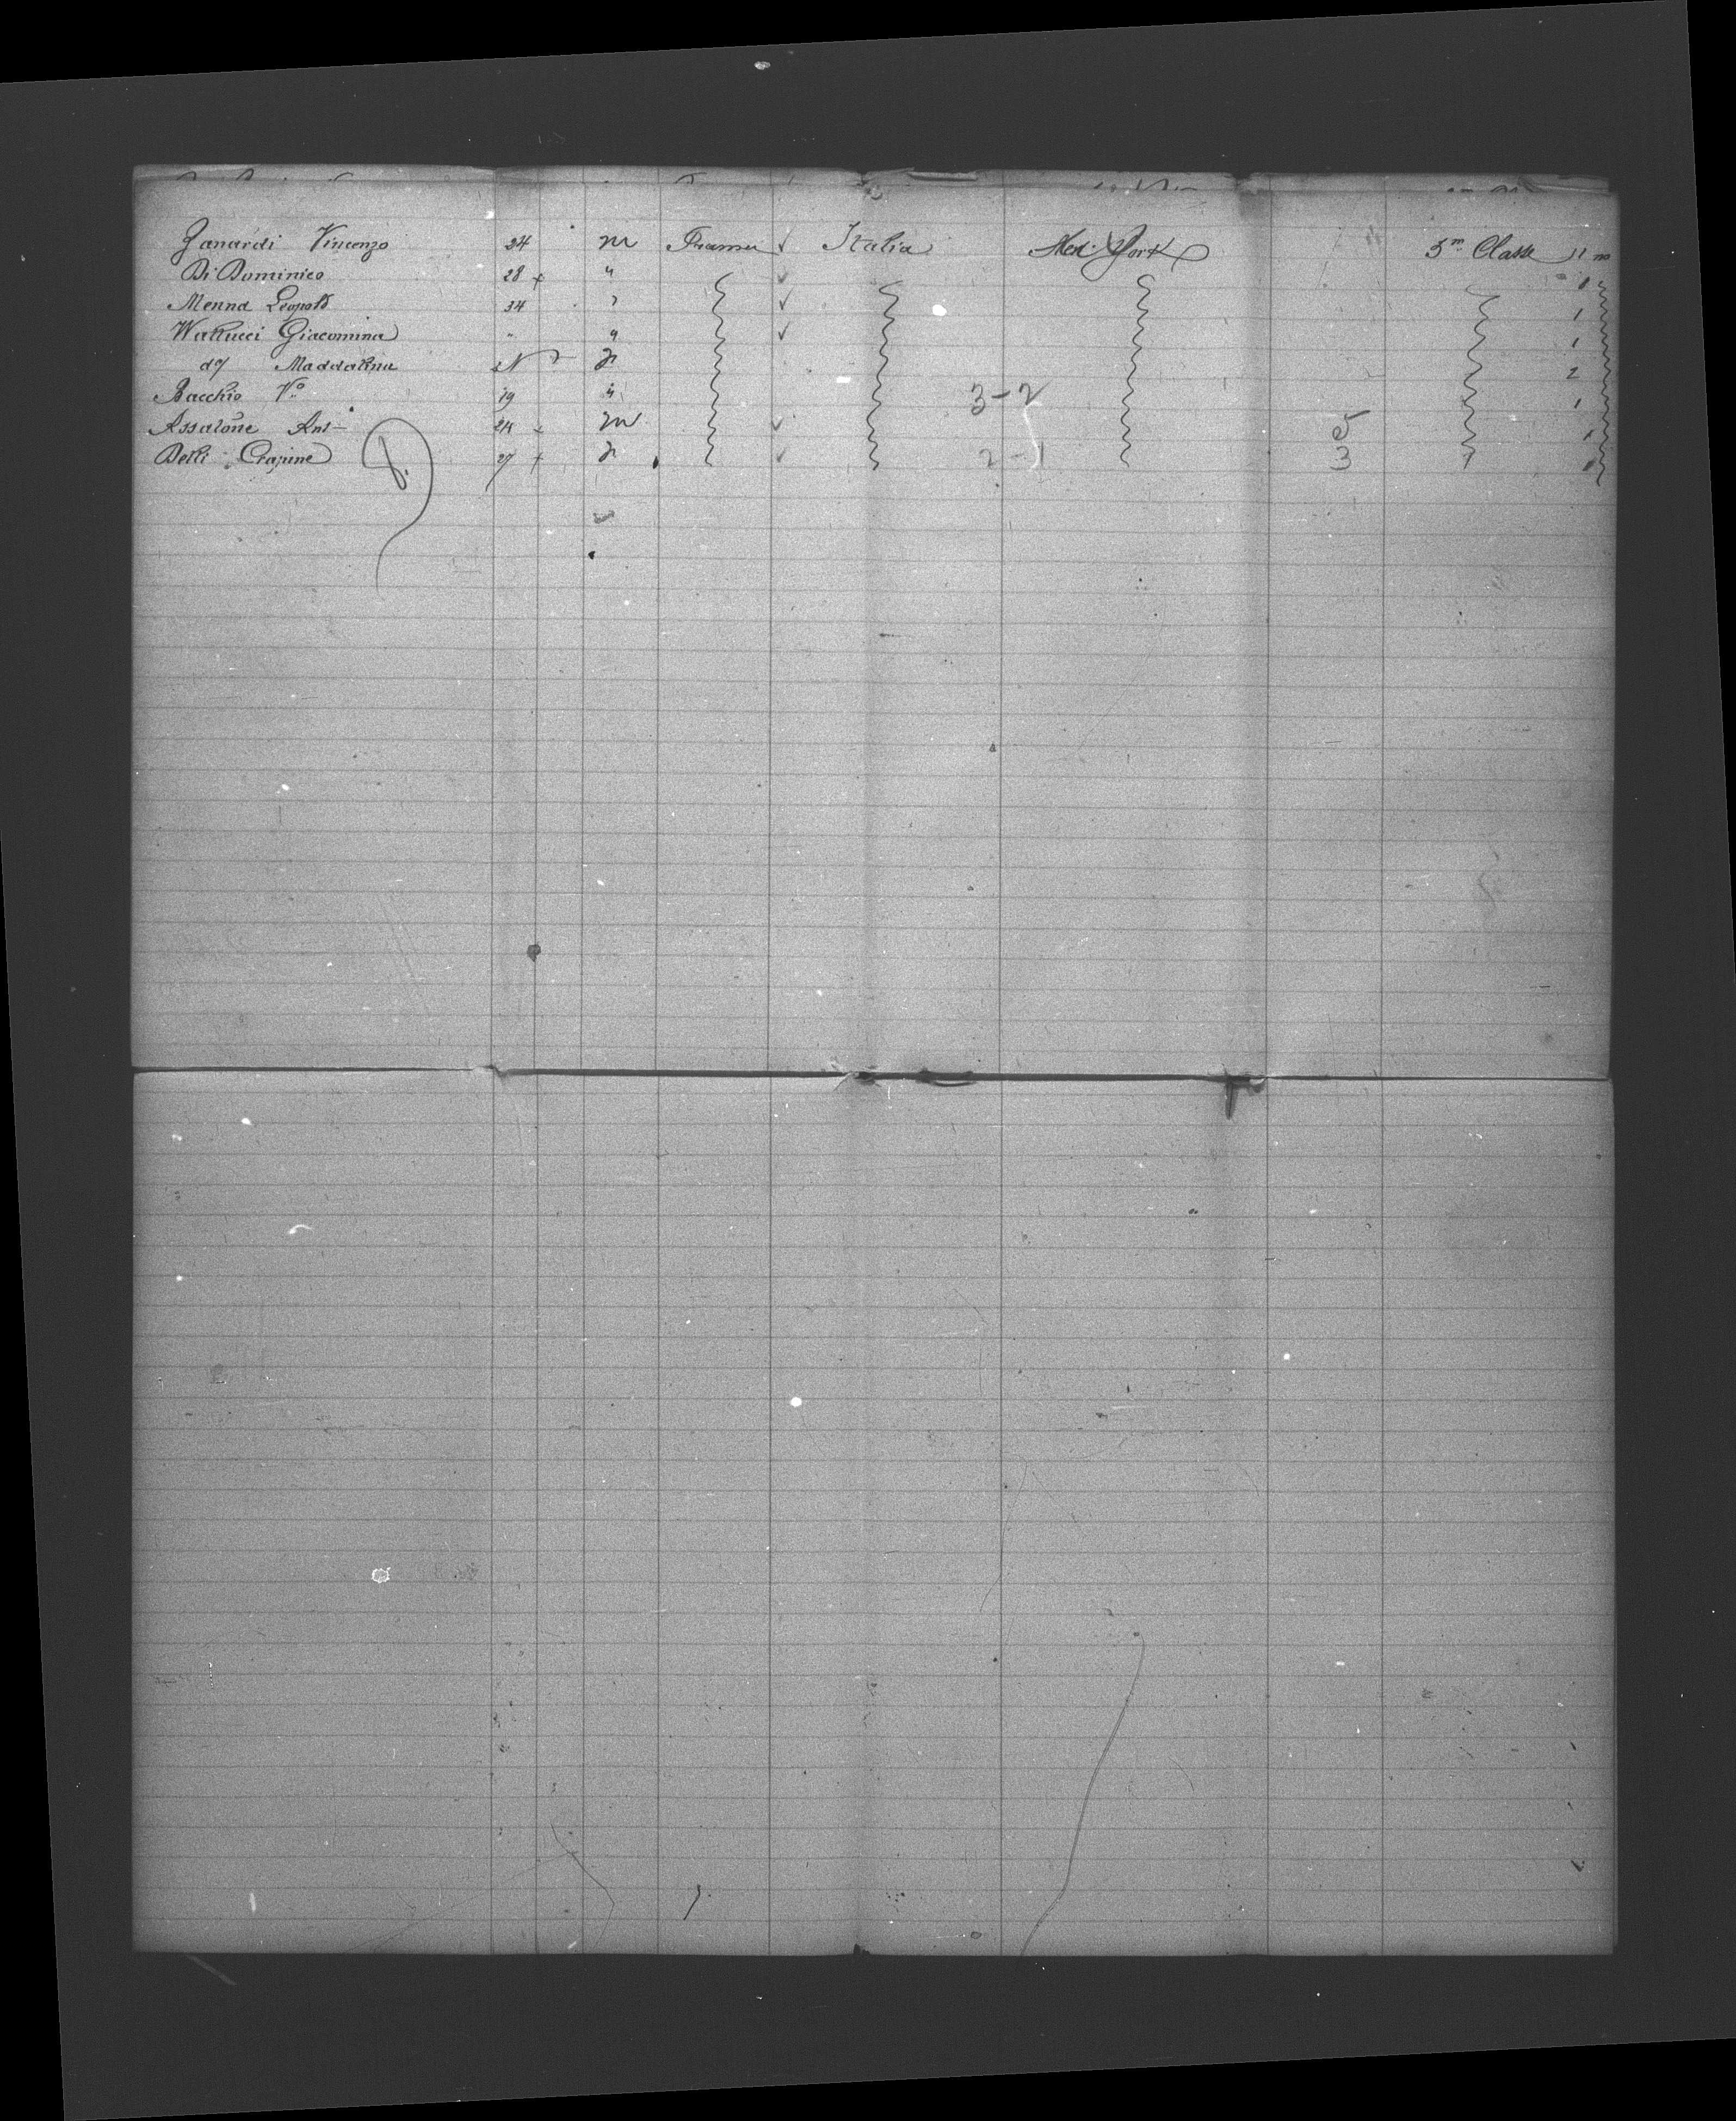 Zanardi Vincenzo 24 m Framer ✓ Italia New York 3m Classe 11 m
Di Dominico 28 + " ✓
Menna Leopold 34 ✓ 1
Wattucci Giacomina " " ✓ 1
d° Maddalina 2
Bacchio V° 19 " 3-2 1
Assalone Ant 24 m ✓ 5
Detti 27 + ✓ 2-1 3